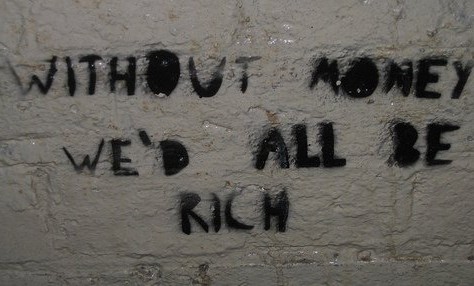 WITHOUT MONEY
WE'D ALL BE
RICH